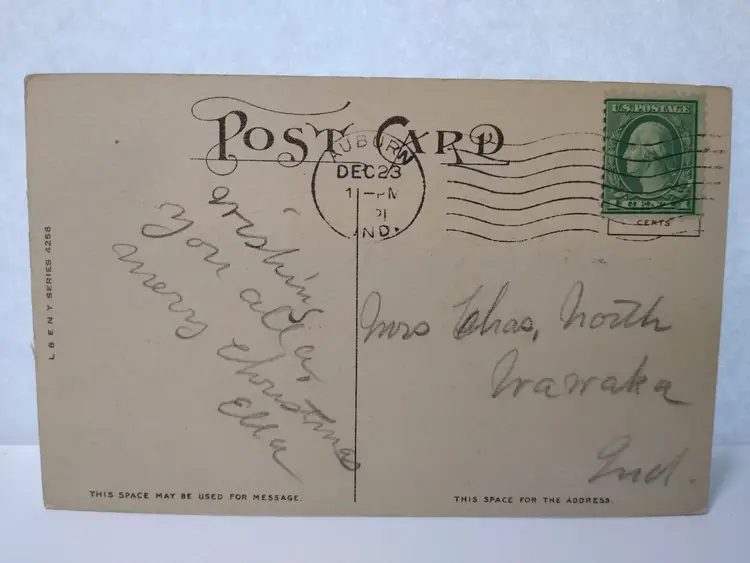 POST CARD
U.S. POSTAGE
CENTS
AUBURN
DEC 23
1 - PM
IND.
wishing
you all a
merry Christmas
Ella
Mrs Chas, North
Wawaka
Ind.
L & E N Y SERIES 4256
THIS SPACE MAY BE USED FOR MESSAGE.
THIS SPACE FOR THE ADDRESS.